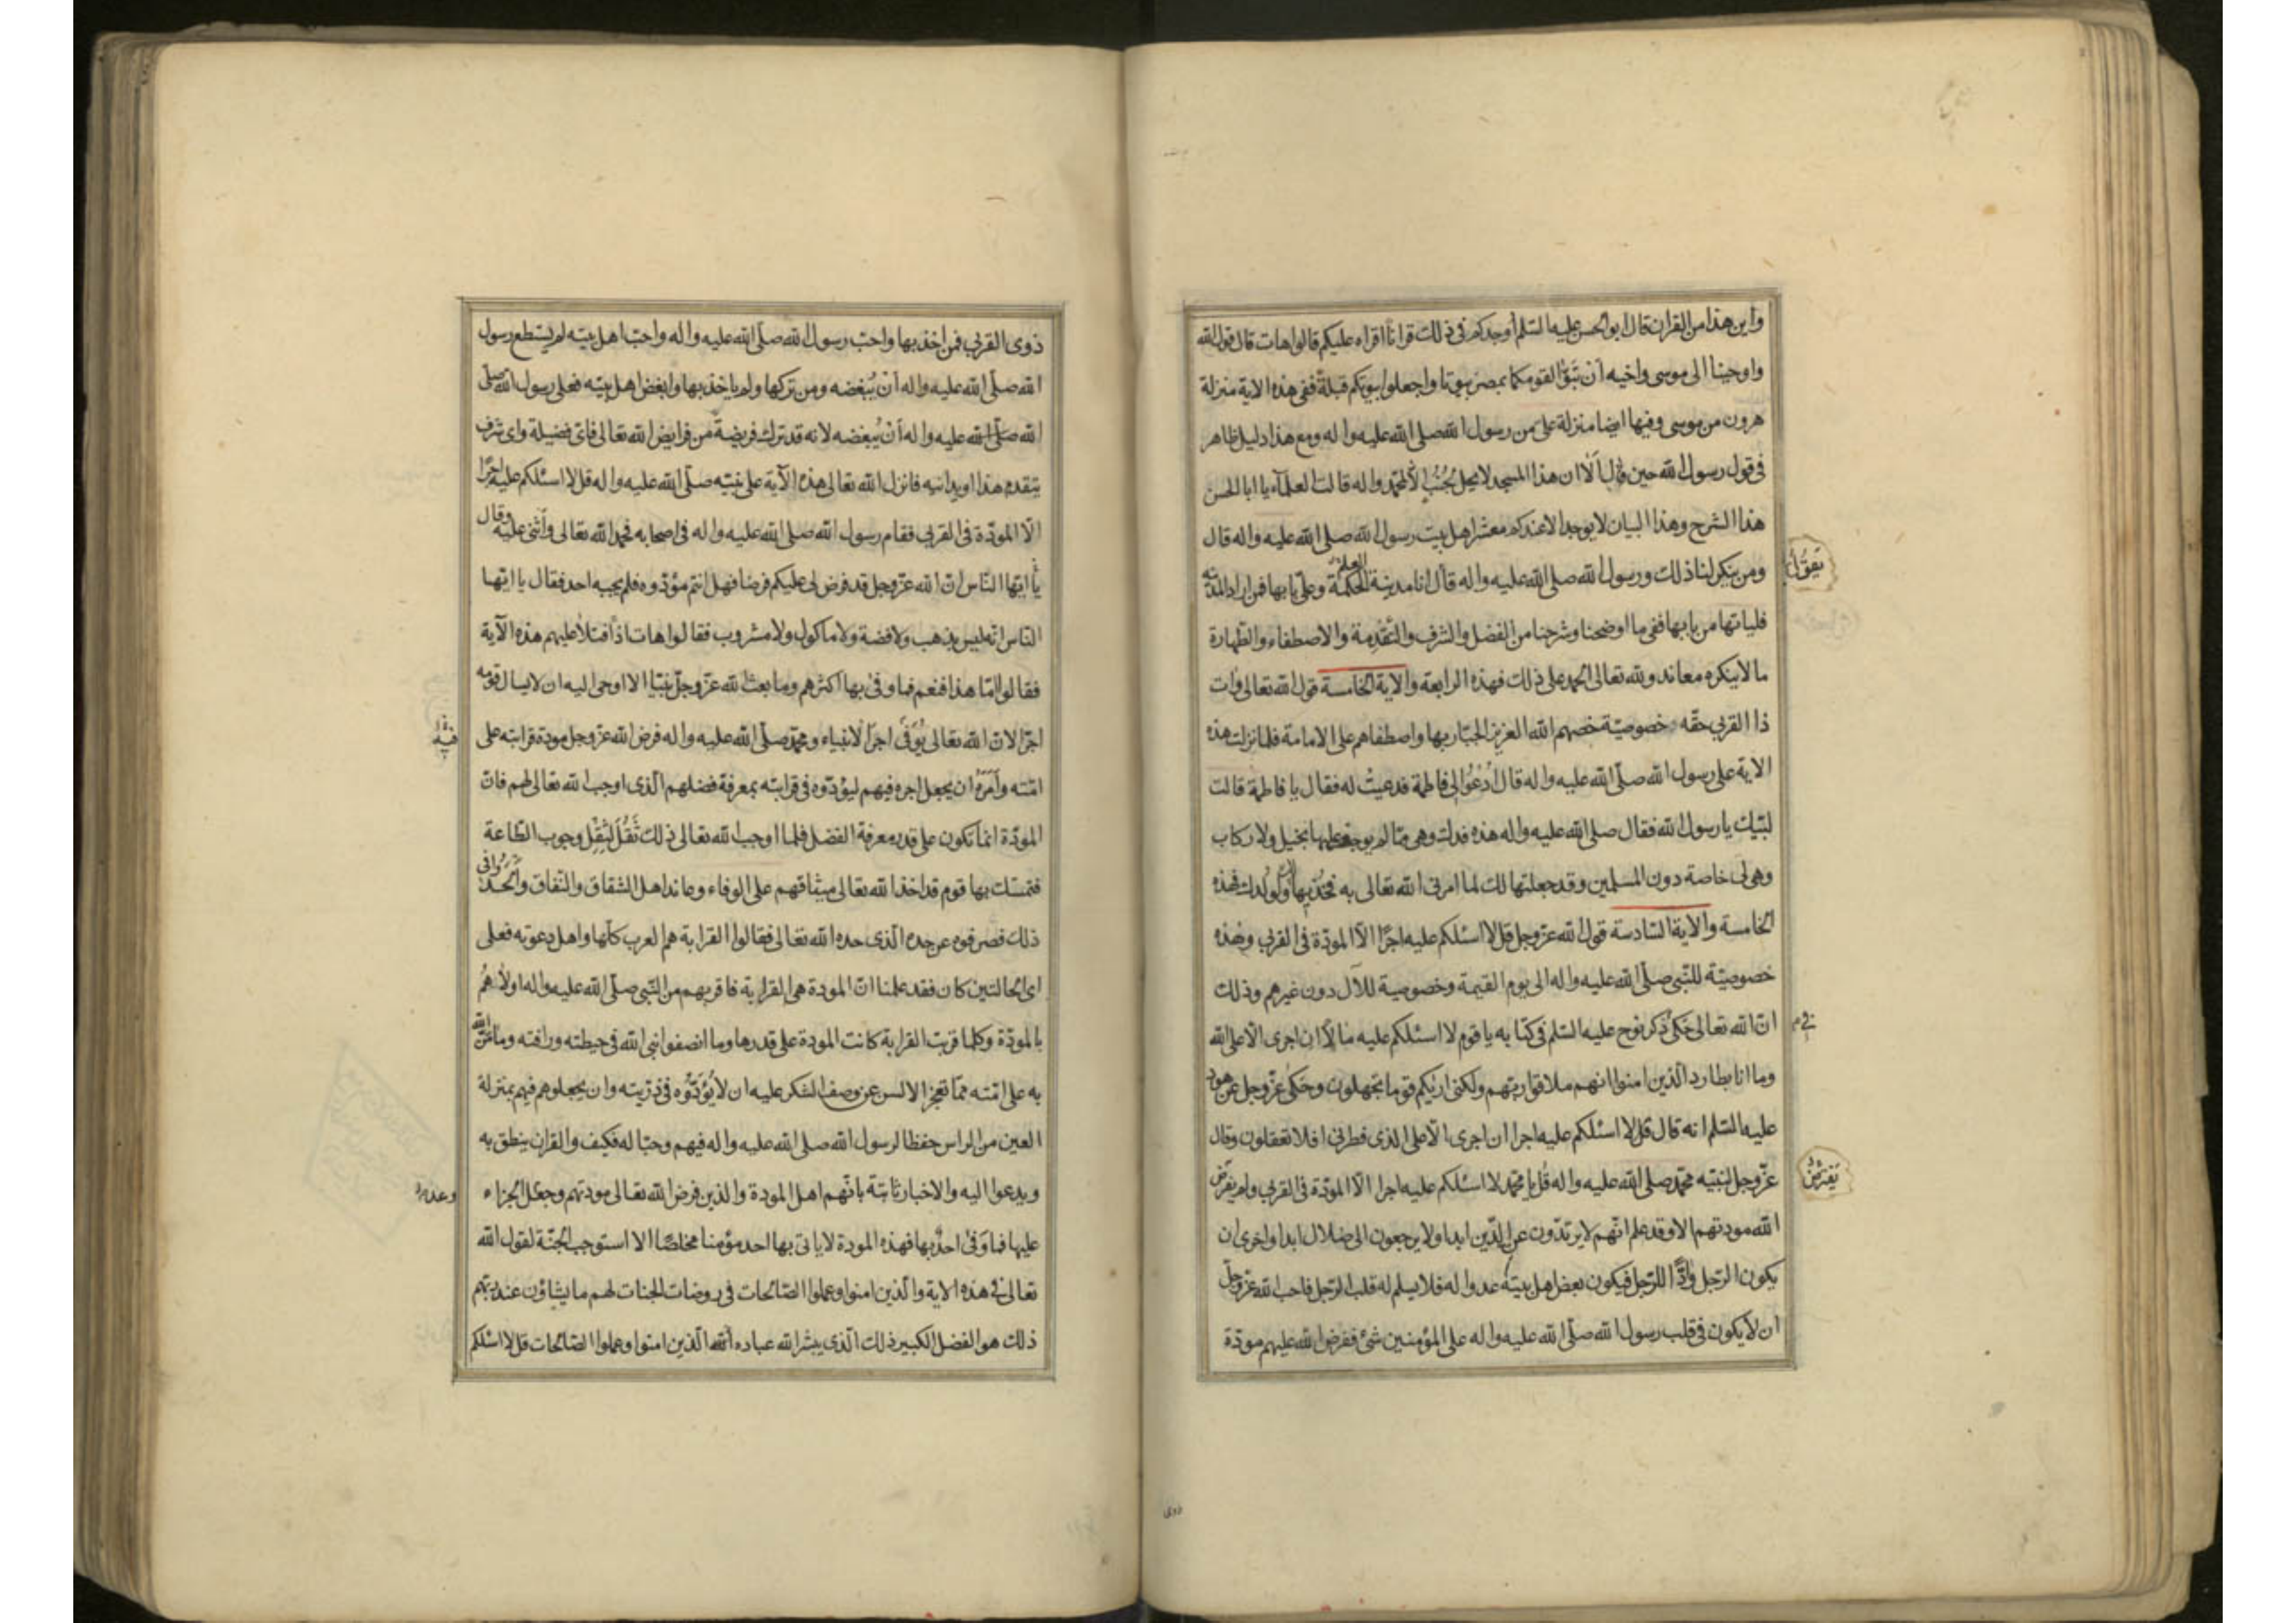 واين هذا من القران قال ابو الحسن عليه السلم أوجدكم في ذلك قرانا اقراه عليكم قالوا هات قال قول الله
واوحينا الى موسى واخيه أن تَبَوَّا لقومكما بمصر بيوتا واجعلوا بيوتكم قبلة ففي هذه الاية منزلة
هرون من موسى وفيها ايضا منزلة علىّ من رسول الله صلى الله عليه واله ومع هذا دليل ظاهر
في قول رسول الله حين قال ألا ان هذا المسجد لا يحل لجُنُب إلّا لمحمد واله قالت العلمآء يا ابا الحسن
هذا الشرح وهذا البيان لا يوجد الا عندكم معشر اهل بيت رسول الله صلى الله عليه واله قال
ومن ينكر لنا ذلك ورسول الله صلى الله عليه واله قال انا مدينة الحكمة وعلىّ بابها فمن اراد المدينة
العلم
يَقُولُ
فلياتها من بابها ففي ما اوضحنا وشرحنا من الفضل والشرف والتَّقْدِمة والاصطفاء والطهارة
ما لا ينكره معاند ولله تعالى الحمد على ذلك فهذه الرابعة والاية الخامسة قول الله تعالى وات
ذا القربى حقه خصوصيّة خصهم الله العزيز الجبّار بها واصطفاهم على الامامة فلما نزلت هذه
الاية على رسول الله صلّى الله عليه واله قال أُدْعُوا لى فاطمة فدعيتْ له فقال يا فاطمة قالت
لبّيك يا رسول الله فقال صلى الله عليه واله هذه فدك وهى ممّا لم يوجف عليها بخيل ولا ركاب
وهى لى خاصة دون المسلمين وقد جعلتها لك لما امرنى الله تعالى به فخُذيها لك ولولدك فهذه
الخامسة والاية السّادسة قول الله عزّ وجل قل لا اسئلكم عليه اجرًا الّا المودّة فى القربى وهذه
خصوصيّة للنّبى صلّى الله عليه واله الى يوم القيمة وخصوصية للآل دون غيرهم وذلك
انّ الله تعالى حَكى ذكر نوح عليه السّلم فى كتابه يا قوم لا اسئلكم عليه مالاً ان اجرى الّا على الله
وما انا بطارد الّذين امنوا انهم ملاقوا ربّهم ولكنى اريكم قوما تجهلون وحَكى عزّ وجل عن هود
عليه السّلم انه قال قل لا اسئلكم عليه اجرا ان اجرى الّا على الذى فطرنى افلا تعقلون وقال
عزّ وجل لنبيّه محمّد صلى الله عليه واله قُل يا محمّد لا اسئلكم عليه اجرا الّا المودّة فى القربى ولم يفرض
يَفْرِضُ
الله مودتهم الا وقد علم انّهم لا يرتدّون عن الدّين ابدا ولا يرجعون الى ضلال ابدا واخرى ان
يكون الرّجل وادًّا للرّجل فيكون بعض اهل بيته عدوا له فلا يسلم له قلب الرّجل فاحب الله عزّ وجلّ
ان لا يكون فى قلب رسول الله صلّى الله عليه واله على المؤمنين شئ ففرض الله عليهم مودّة
ذوى
ذوى القربى فمن اخذ بها واحبّ رسول الله صلّى الله عليه واله واحبّ اهل بيته لم يستطع رسول
الله صلّى الله عليه واله أنْ يُبغضه ومن تركها ولم ياخذ بها وابغض اهل بيته فعلى رسول الله صلّى
الله صلّى الله عليه واله أنْ يُبغضه لانه قد ترك فريضةً من فرايض الله تعالى فاىّ فضيلة واى شرف
يتقدم هذا او يدانيه فانزل الله تعالى هذه الآية على نبيّه صلّى الله عليه واله قل لا اسئلكم عليه اجرًا
الّا المودّة فى القربى فقام رسول الله صلى الله عليه واله فى اصحابه فحمد الله تعالى وأثنى عليه وقال
يا ايّها النّاس انّ الله عزّ وجل قد فرض لى عليكم فرضا فهل انتم مؤدّوه فلم يجبه احد فقال يا ايّها
النّاس انّه ليس بذهب ولا فضة ولا ماكول ولا مشروب فقالوا هات اذاً فتلا عليهم هذه الآية
فقالوا امّا هذا فنعم فما وفى بها اكثرهم وما بعث الله عزّ وجلّ نبيّا الا اوحى اليه ان لا يسال قومه
اجرًا لانّ الله تعالى يُوَفّى اجرَ الانبياء ومحمّد صلّى الله عليه واله فرض الله عزّ وجل مودة قرابته على
امّته وأمَرَهُ ان يجعل اجره فيهم ليؤدّوه فى قرابته بمعرفة فضلهم الّذى اوجب الله تعالى لهم فانّ
المودّة انما تكون على قدر معرفة الفضل فلما اوجب الله تعالى ذلك ثَقُلَ لثِقْلِ وجوب الطّاعة
فتمسّك بها قوم قد اخذ الله تعالى ميثاقهم على الوفاء وعاند اهل الشقاق والنّفاق والحدوا فى
ذلك فصرفوه عن حده الّذى حده الله تعالى فقالوا القرابة هم العرب كلّها واهل دعوته فعلى
اى الحالتين كان فقد علمنا انّ المودة هى القرابة فاقربهم من النّبى صلّى الله عليه واله اولاهُم
بالمودّة وكلما قربت القرابة كانت المودة على قدرها وما انصفوا نبى الله فى حيطته ورافته وما منّ الله
به على امّته ممّا تعجز الالسن عن وصف الشكر عليه ان لا يُؤدّوْه فى ذرّيته وان يجعلوهم فيهم بمنزلة
العين من الراس حفظا لرسول الله صلى الله عليه واله فيهم وحبّا له فكيف والقران ينطق به
ويدعوا اليه والاخبار ثابتة بانّهم اهل المودة والذين فرض الله تعالى مودتهم وجعل الجزاء
عليها فما وَفى احدٌ بها فهذه المودة لا ياتى بها احد مؤمنا مخلصًا الا استوجب الجنّة لقول الله
تعالى فى هذه الاية والّذين امنوا وعملوا الصّالحات فى روضات الجنات لهم ما يشاؤن عند ربّهم
ذلك هو الفضل الكبير ذلك الّذى يبشر الله عباده الّذين امنوا وعملوا الصّالحات قل لا اسئلكم